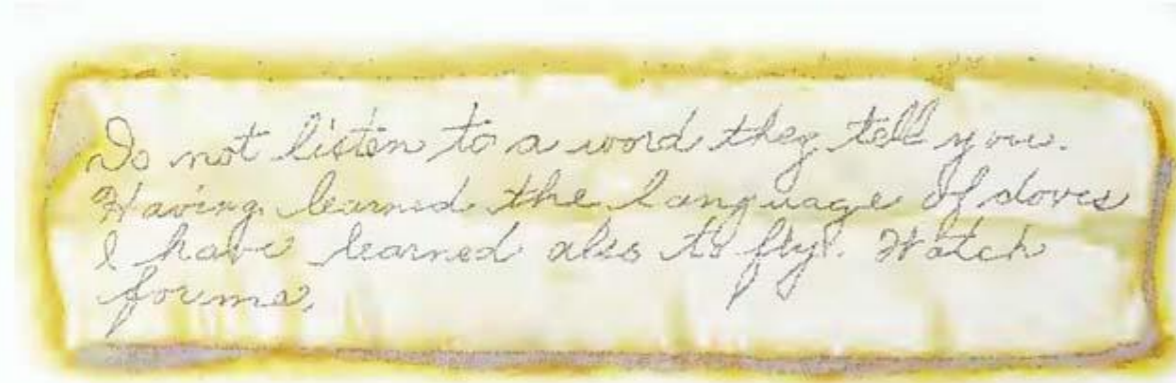 Do not listen to a word they tell you.
Having learned the language of doves
I have learned also to fly. Watch
for me.